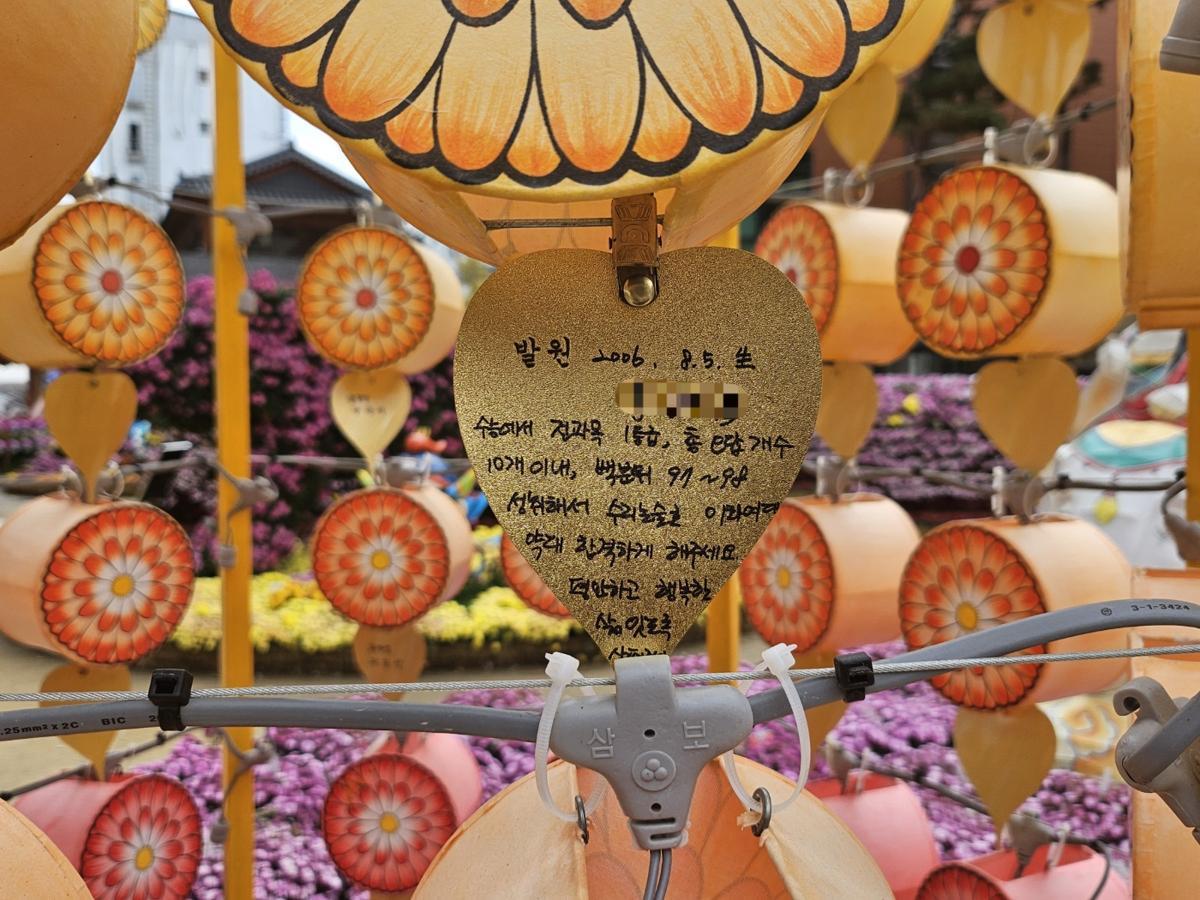 발원 2006. 8.5. 生
수능에서 전과목 1등급, 총 오답 개수
10개 이내, 백분위 97~98
성취해서 수리논술로 이화여대
약대 합격하게 해주세요
편안하고 행복한
삶 있도록
3-1-3424
.25mm² x 2C BIC 2
삼보